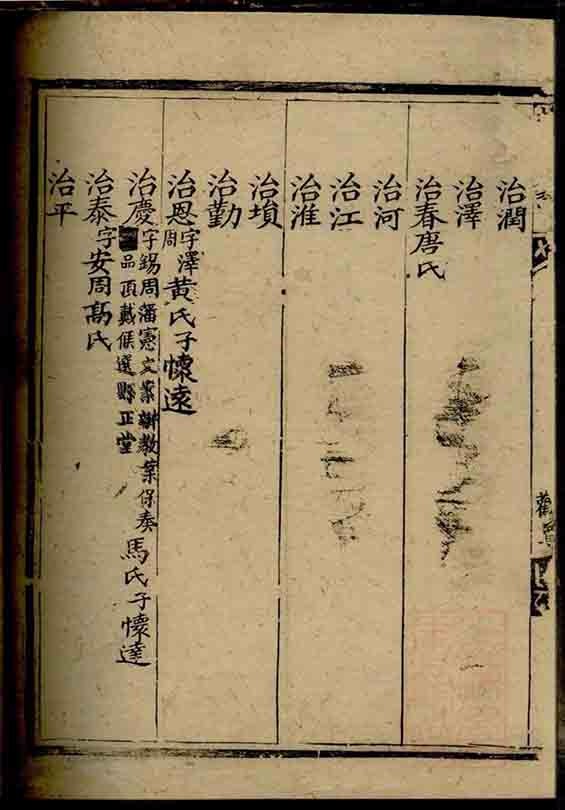 治潤
治澤
治春唐氏
治河
治江
治淮
治墳
治勤
治恩字澤周黄氏子懷遠
治慶字錫周藩憲文案辦教案保奏
品頂戴候選縣正堂
馬氏子懷達
治泰字安周高氏
治平